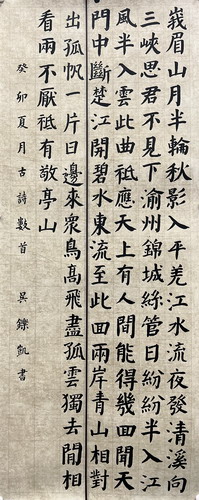 峩眉山月半輪秋影入平羌江水流夜發清溪向
三峽思君不見下渝州錦城絲管日紛紛半入江
風半入雲此曲祗應天上有人間能得幾回聞天
門中斷楚江開碧水東流至此回兩岸青山相對
出孤帆一片日邊來衆鳥高飛盡孤雲獨去閒相
看兩不厭祗有敬亭山
癸卯夏月古詩數首 吳鑠凱書